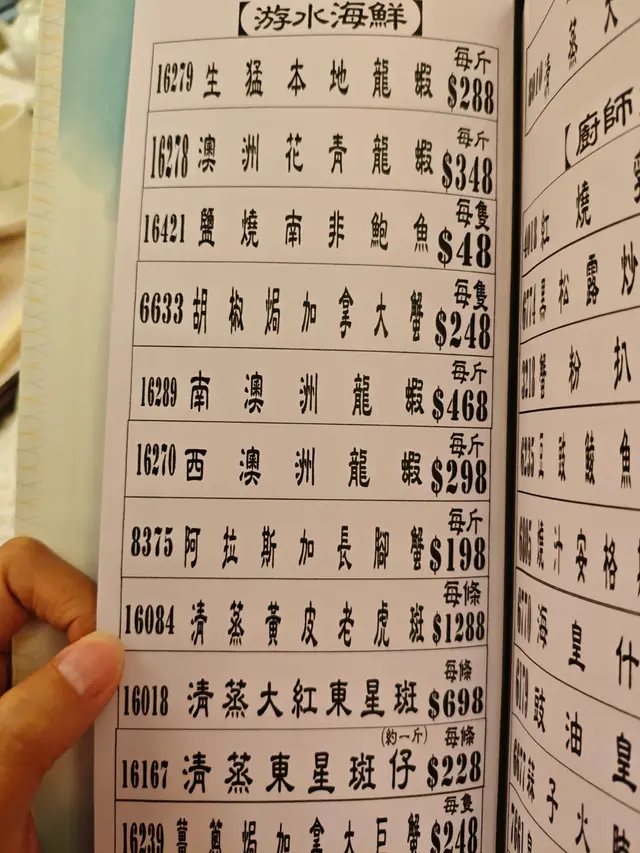 【游水海鮮】
16279 生猛本地龍蝦 每斤 $288
16278 澳洲花青龍蝦 每斤 $348
16421 鹽燒南非鮑魚 每隻 $48
6633 胡椒焗加拿大蟹 每隻 $248
16289 南澳洲龍蝦 每斤 $468
16270 西澳洲龍蝦 每斤 $298
8375 阿拉斯加長腳蟹 每斤 $198
16084 清蒸黃皮老虎斑 每條 $1288
16018 清蒸大紅東星斑 每條 $698
16167 清蒸東星斑仔 (約一斤) 每條 $228
16239 薑蔥焗加拿大巨蟹 每隻 $248
8010 清蒸大
【廚師
4018 紅燒
黑松露炒
蟹粉扒
豆豉鯪魚
燒汁安格
海皇什
豉油皇
子火